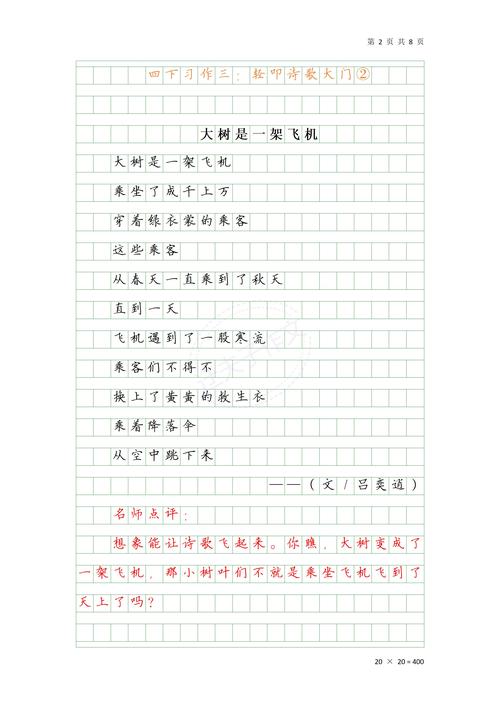 第 2 页 共 8 页
四下习作三：轻叩诗歌大门②
大树是一架飞机
大树是一架飞机
乘坐了成千上万
穿着绿衣裳的乘客
这些乘客
从春天一直乘到了秋天
直到一天
飞机遇到了一股寒流
乘客们不得不
换上了黄黄的救生衣
乘着降落伞
从空中跳下来
——（文/吕奕逍）
名师点评：
想象能让诗歌飞起来。你瞧，大树变成了
一架飞机，那小树叶们不就是乘坐飞机飞到了
天上了吗？
20 × 20 = 400